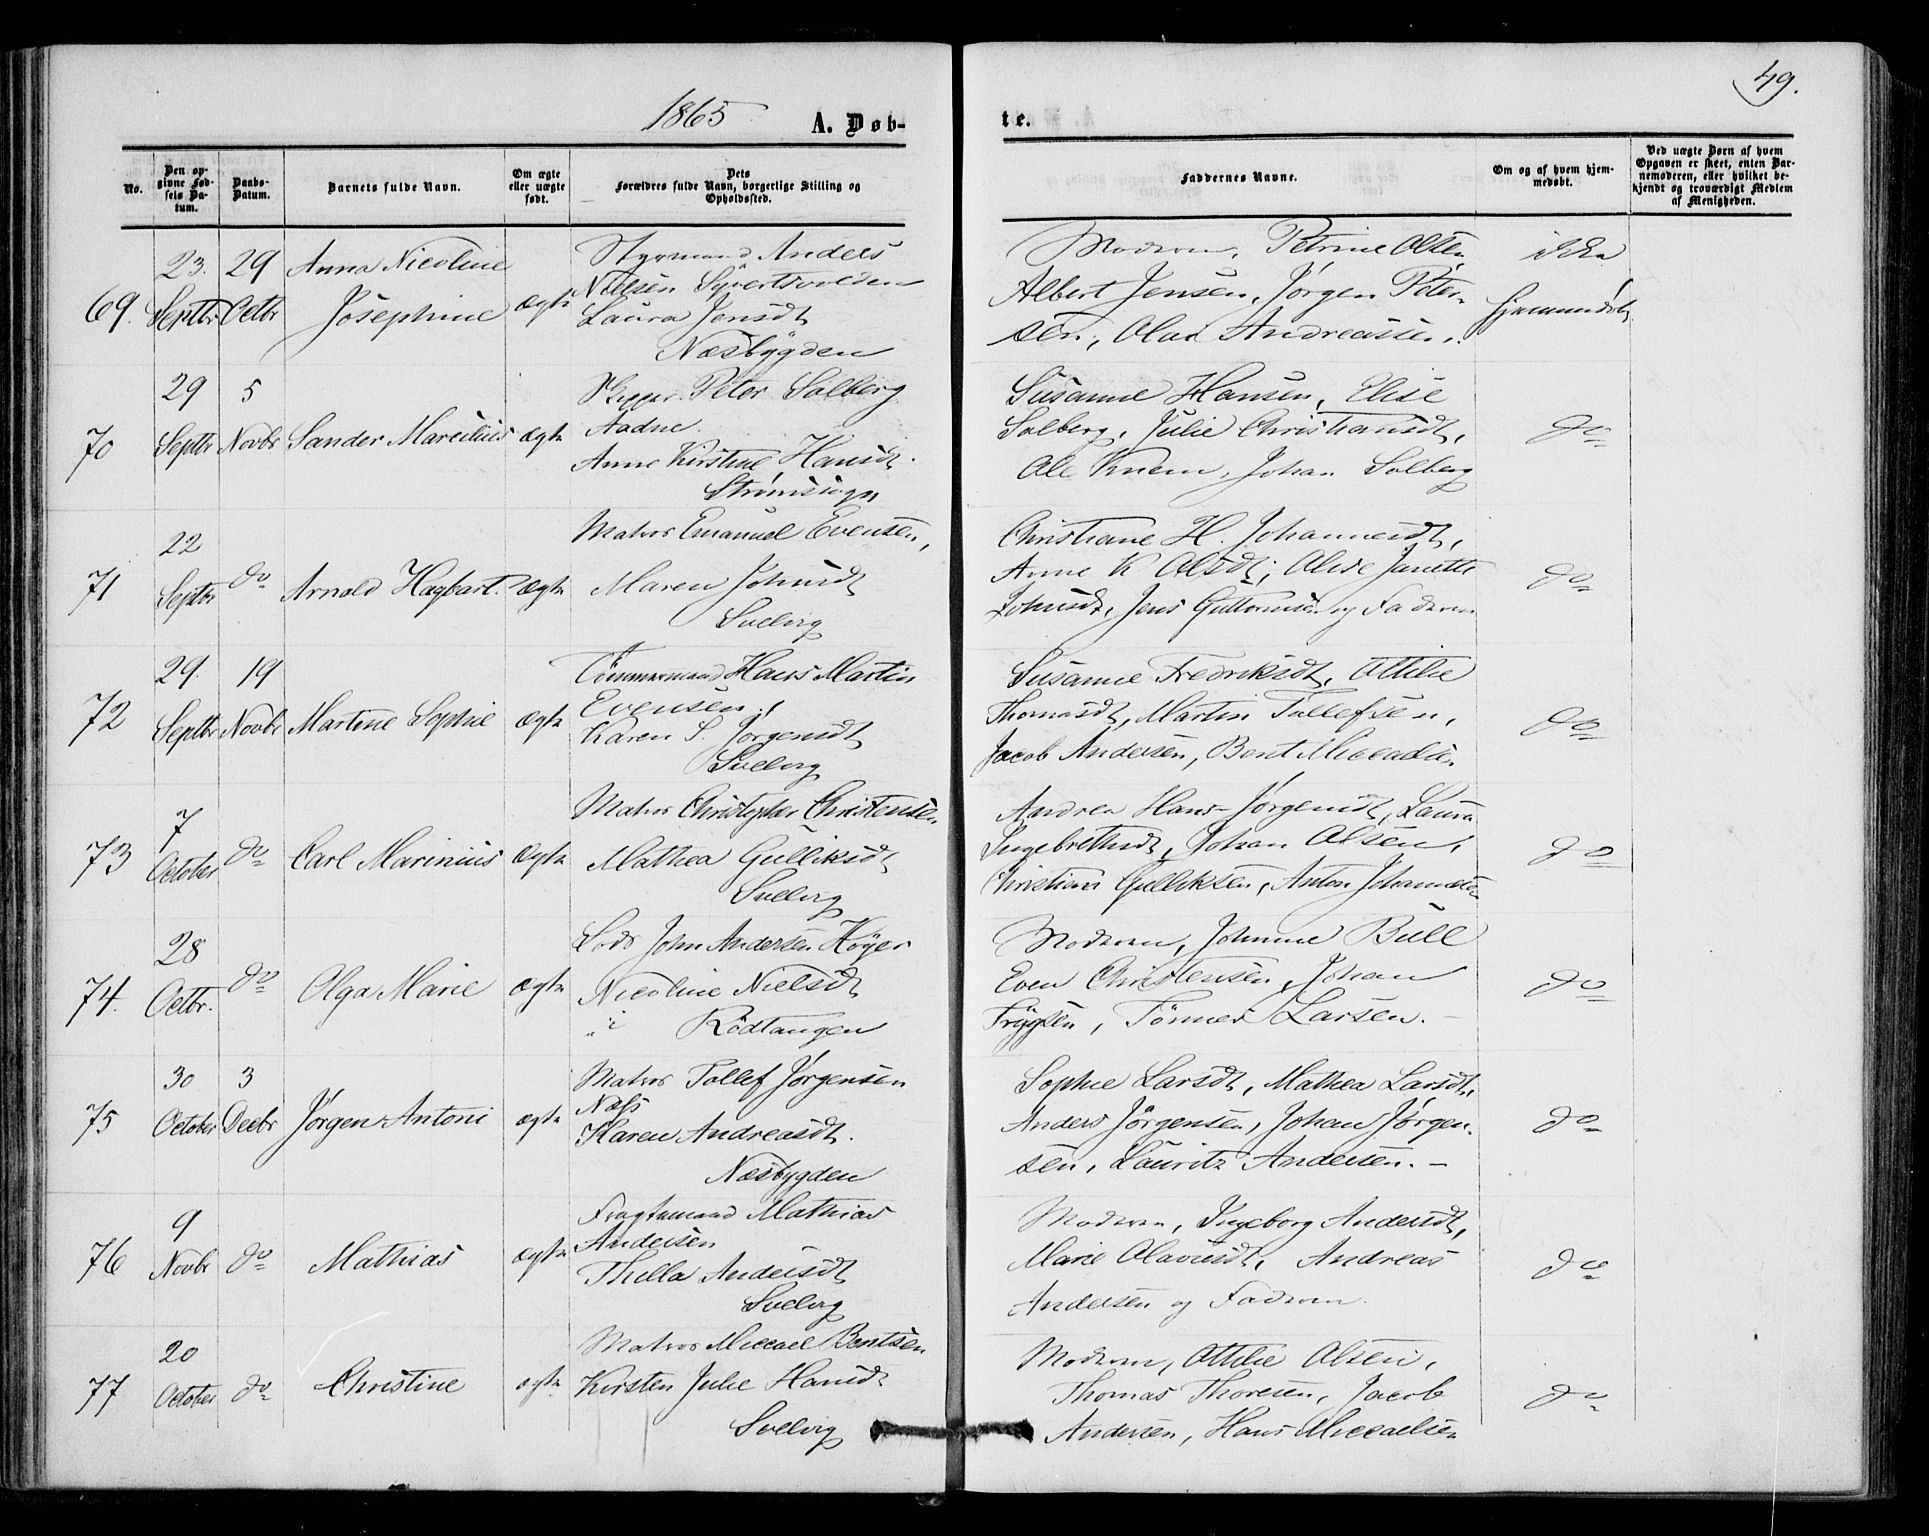 49.
1865
A. Døb-
te.
No.
Den op-
givne Fød-
sels Da-
tum.
Daabs-
Datum.
Barnets fulde Navn.
Om ægte
eller uægte
født.
Dets
Forældres fulde Navn, borgerlige Stilling og
Opholdssted.
Faddernes Navne.
Om og af hvem hjem-
medøbt.
Ved uægte Børn af hvem
Opgaven er skeet, enten Bar-
nemoderen, eller hvilket be-
kjendt og troværdigt Medlem
af Menigheden.
69.
23.
Septbr
29
Octbr
Anna Nicoline
Josephine
ægte
Styrmand Anders
Nielsen Syvertsvolden
Laura Jensdt
Næsbygden
Moderen, Petrine Olsen
Albert Jensen, Jørgen Peter-
sen, Olas Andreassen.
ikke
hjemmedøbt
70
29
Septbr
5
Novbr
Sander Marcilius
ægte
Skipper Peter Solberg
Aadne.
Anne Kirstine Hansdt.
Strømsogn
Susanne Hansen, Elise
Solberg, Julie Christiansdt,
Ole Knem, Johan Solberg
do
71
22
Septbr
do
Arnold Hagbart.
ægte
Matros Emanuel Evensen,
Maren Johnsdt
Svelvig
Christiane H. Johannesdt,
Anne K Olsdt, Olise Janette
Johnsdt, Jens Guttormsen og Faderen
do
72
29.
Septbr
19
Novbr
Martine Sophie
ægte
Tømmermand Hans Martin
Evensen,
Karen S. Jørgensdt
Svelvig
Susanne Fredriksdt, Ottilie
Thomasdt, Martin Tollefsen,
Jacob Andersen, Bent Miccaelsen
do
73
7
October
do
Carl Marinius
ægte
Matros Christopher Christensen
Mathea Gulliksdt
Svelvig
Andrea Hans-Jørgensdt, Laura
Ingebrethsdt, Johan Olsen,
Christian Gulliksen, Anton Johannesen
do
74.
28
Octbr.
do
Olga Marie
ægte
Lods John Andersen Høyer
Nicoline Nielsdt
i Rødtangen
Moderen, Johanne Bull
Even Christensen, Johan
Trygsen, Tønnes Larsen.
do
75
30
October
3
Decbr
Jørgen Antoni
ægte
Matros Tollef Jørgensen
Næss
Karen Andreasdt.
Næsbygden
Sophie Larsdt, Mathea Larsdt,
Anders Jørgensen, Johan Jørgen-
sen, Lauritz Andersen.
do
76
9
Novbr
do
Mathias
ægte
Fragtemand Mathias
Andersen
Thilla Andersdt
Svelvig
Moderen, Ingeborg Andersdt,
Marie Olavesdt, Andreas
Andersen og Faderen.
do
77
20
October
do
Christine
ægte
Matros Miccael Bentsen
Kirsten Julie Hansdt
Svelvig
Moderen, Ottilie Olsen,
Thomas Thoresen, Jacob
Andersen, Hans Miccaelsen
do